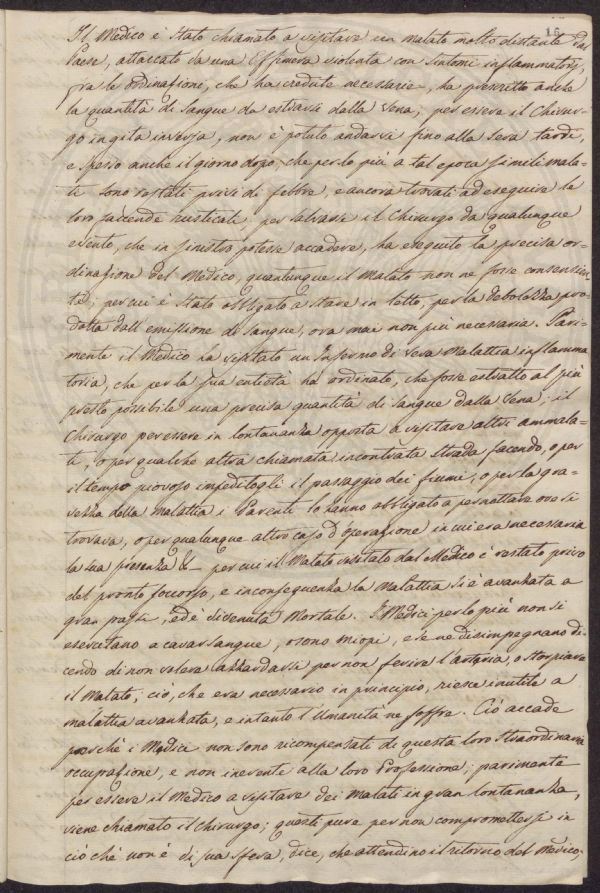 16
Il Medico è stato chiamato a visitare un malato molto distante dal
Paese, attaccato da una Effimera violenta con sintomi inflammatorj,
fra le ordinazioni, che ha credute necessarie, ha prescritto anche
la quantità di sangue da estrarsi dalla Vena; per essere il Chirur-
go in gita inversa, non è potuto andarvi fino alla sera tardi,
e spesso anche il giorno dopo, che per lo più a tal epoca simili mala-
ti sono restati privi di febbre, e ancora trovati ad eseguire le
loro faccende rusticali per salvarsi il Chirurgo da qualunque
evento, che in sinistro potesse accadere, ha eseguito la precisa or-
dinazione del Medico, quantunque il Malato non ne fosse consenzien
te; per cui è stato obbligato a stare in letto, per la debolezza pro-
dotta dall'emissione di sangue, ora mai non più necessaria. Pari-
mente il Medico ha visitato un Infermo di vera Malattia inflamma
toria, che per la sua entità ha ordinato, che fosse estratto al più
presto possibile una precisa quantità di sangue dalla Vena; il
Chirurgo per essere in lontananza opposta a visitare altri ammala-
ti, o per qualche altra chiamata incontrata strada facendo, o per
il tempo piovoso impeditogli il passaggio dei fiumi, o per la gra-
vezza della Malattia i Parenti lo hanno obbligato a pernottare ove si
trovava, o per qualunque altro caso d'operazione in cui era necessaria
la sua presenza & per cui il Malato visitato dal Medico è restato privo
del pronto soccorso, e in conseguenza la Malattia si è avanzata a
gran passi, ed è divenuta Mortale. I Medici per lo più non si
esercitano a cavar sangue, o sono miopi, e se ne disimpegnano di-
cendo di non volere azzardarsi per non ferire l'arteria, o storpiare
il Malato; ciò, che era necessario in principio, riesce inutile a
malattia avanzata, e intanto l'Umanità ne soffre. Ciò accade
perchè i Medici non sono ricompensati di questa loro straordinaria
occupazione, e non inerente alla loro Professione; parimente
per essere il Medico a visitare dei Malati in gran lontananza,
viene chiamato il Chirurgo; questi pure per non compromettersi in
ciò che non è di sua sfera, dice, che attendino il ritorno del Medico,